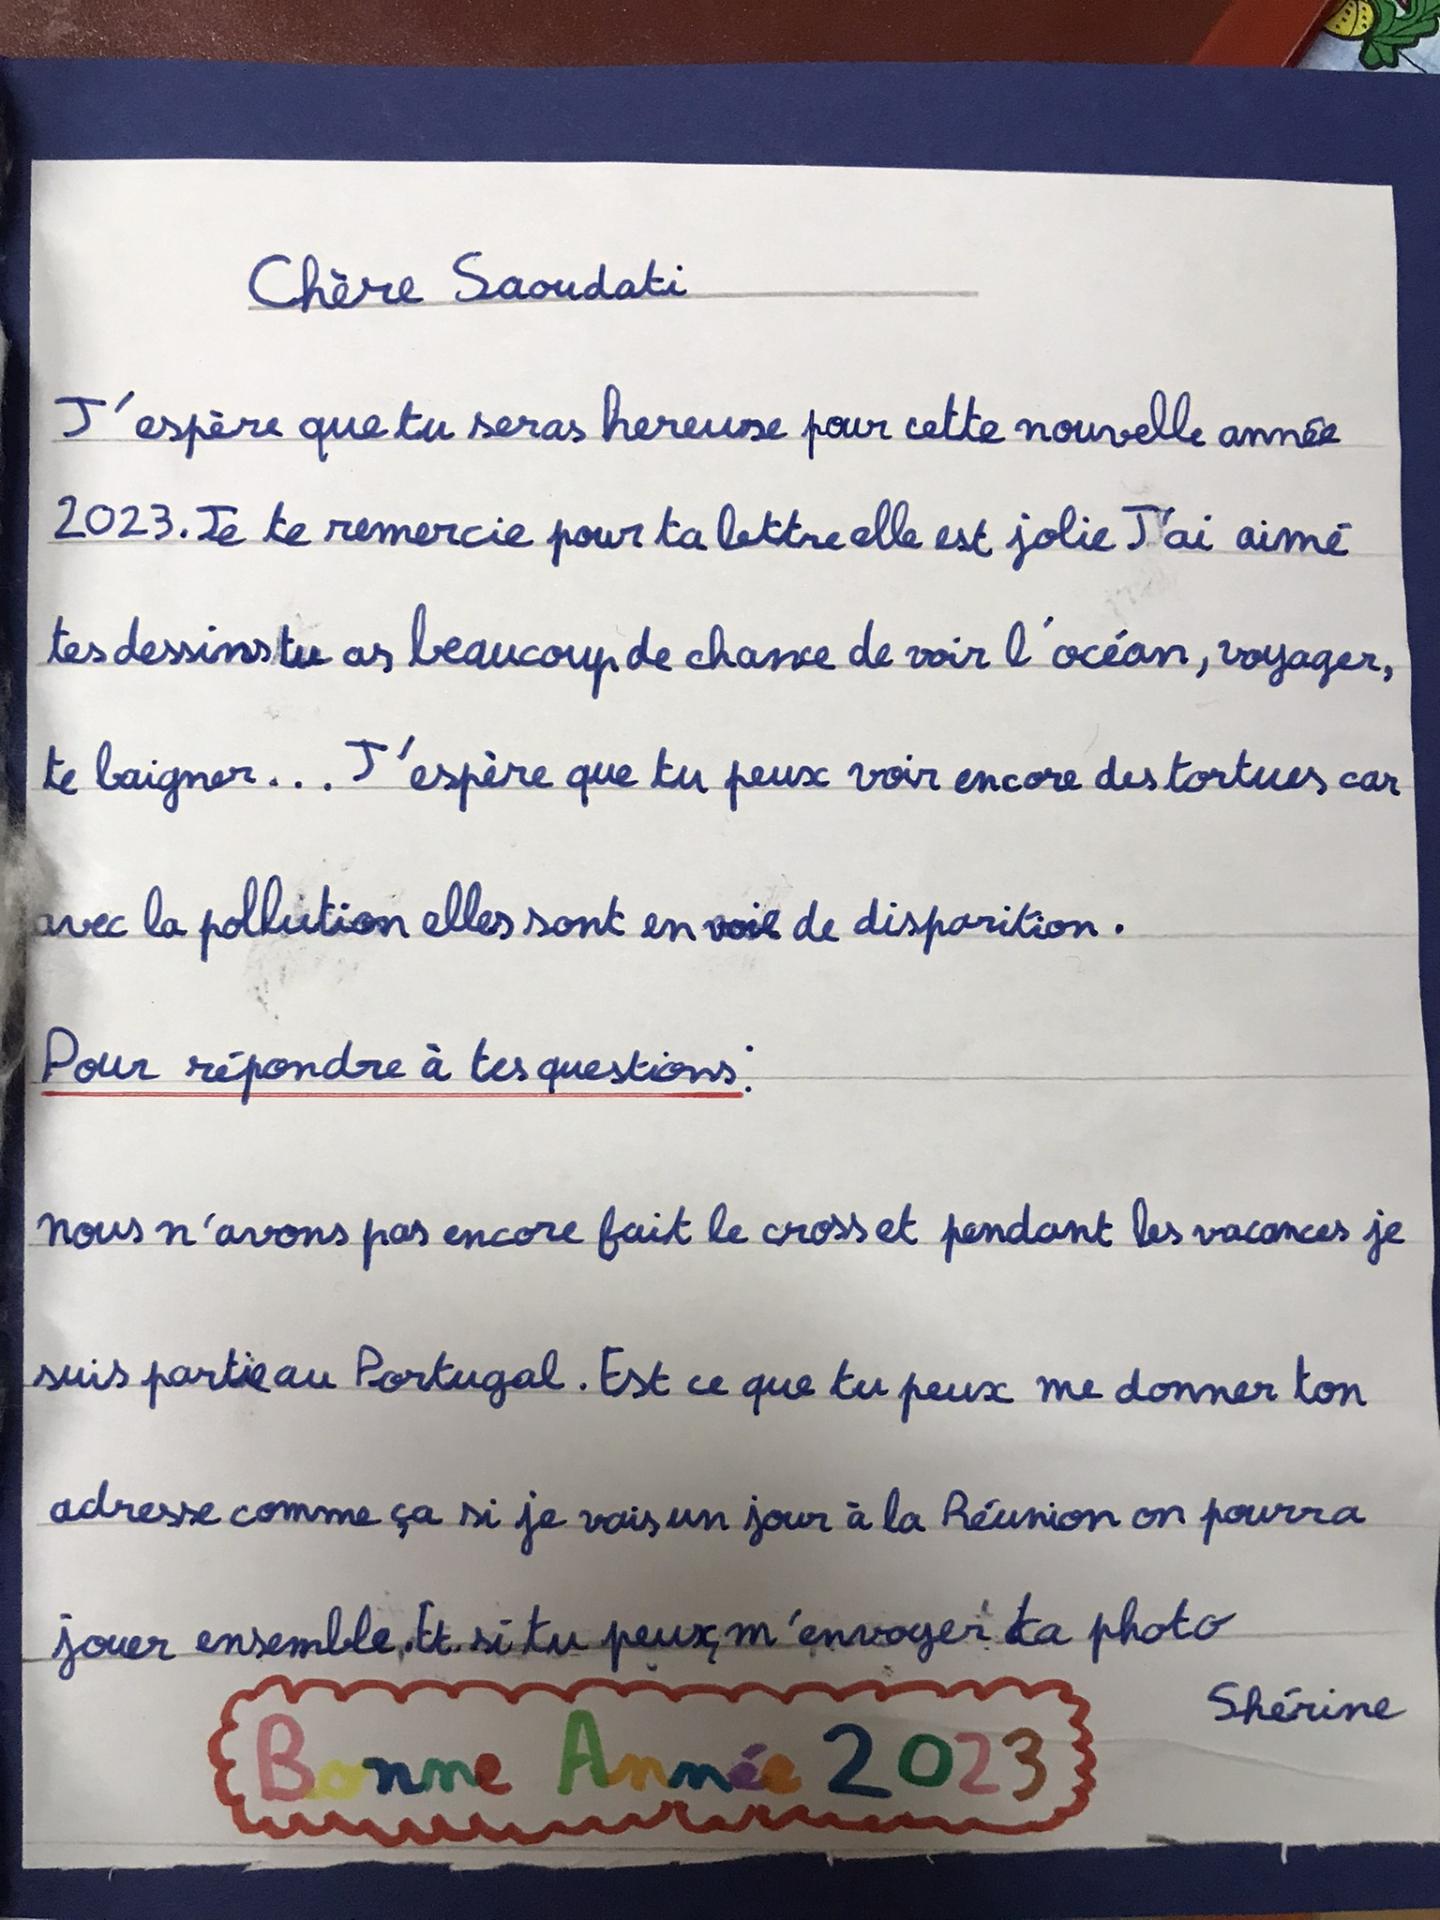 Chère Saoudati
J'espère que tu seras hereuse pour cette nouvelle année
2023. Je te remercie pour ta lettre elle est jolie J'ai aimé
tes dessins tu as beaucoup de chance de voir l'océan, voyager,
te baigner... J'espère que tu peux voir encore des tortues car
avec la pollution elles sont en voie de disparition.
Pour répondre à tes questions:
nous n'avons pas encore fait le cross et pendant les vacances je
suis partie au Portugal. Est ce que tu peux me donner ton
adresse comme ça si je vais un jour à la Réunion on pourra
jouer ensemble. Et si tu peux, m'envoyer ta photo
Shérine
Bonne Année 2023